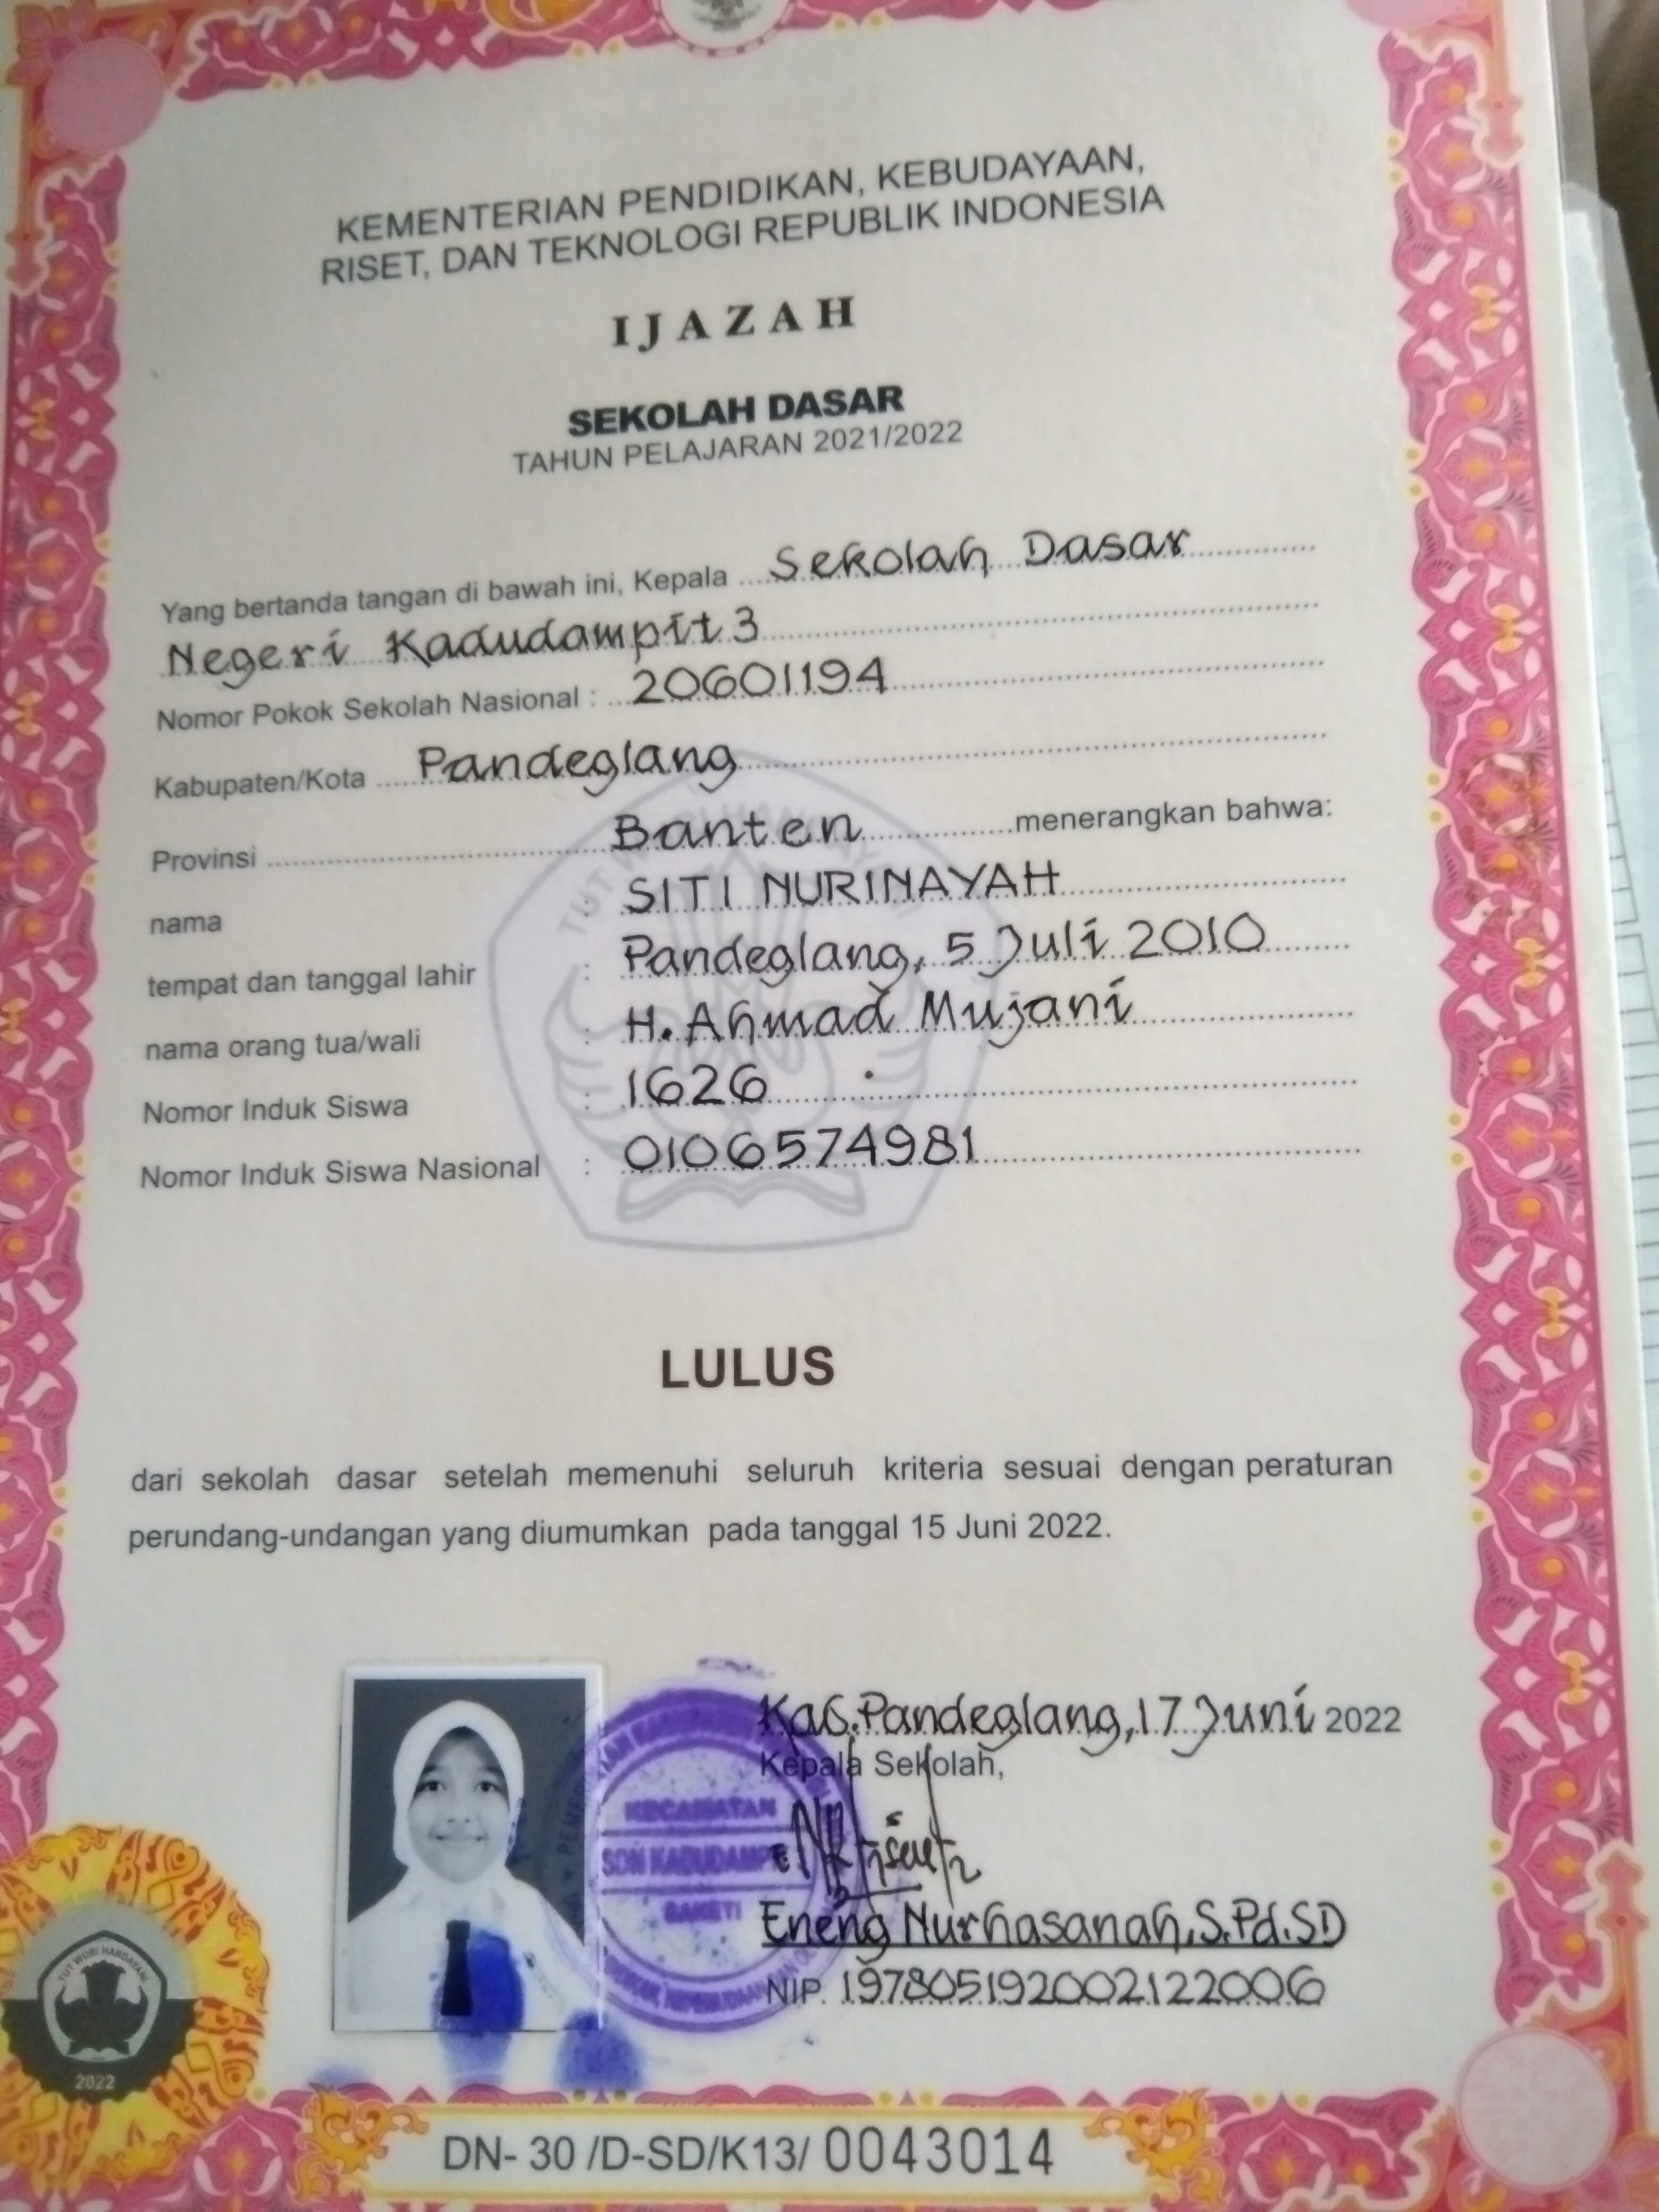 KEMENTERIAN PENDIDIKAN, KEBUDAYAAN,
RISET, DAN TEKNOLOGI REPUBLIK INDONESIA
IJAZAH
SEKOLAH DASAR
TAHUN PELAJARAN 2021/2022
Yang bertanda tangan di bawah ini, Kepala Sekolah Dasar
Negeri Kadudampit 3
Nomor Pokok Sekolah Nasional : 20601194
Kabupaten/Kota Pandeglang
Provinsi Banten menerangkan bahwa:
nama : SITI NURINAYAH
tempat dan tanggal lahir : Pandeglang, 5 Juli 2010
nama orang tua/wali : H. Ahmad Mujani
Nomor Induk Siswa : 1626
Nomor Induk Siswa Nasional : 0106574981
LULUS
dari sekolah dasar setelah memenuhi seluruh kriteria sesuai dengan peraturan
perundang-undangan yang diumumkan pada tanggal 15 Juni 2022.
Kab. Pandeglang, 17 Juni 2022
Kepala Sekolah,
KECAMATAN
SDN KADUDAMPIT
SAKETI
Eneng Nurhasanah, S.Pd.SD
NIP. 197805192002122006
TUT WURI HANDAYANI
2022
DN- 30 /D-SD/K13/ 0043014